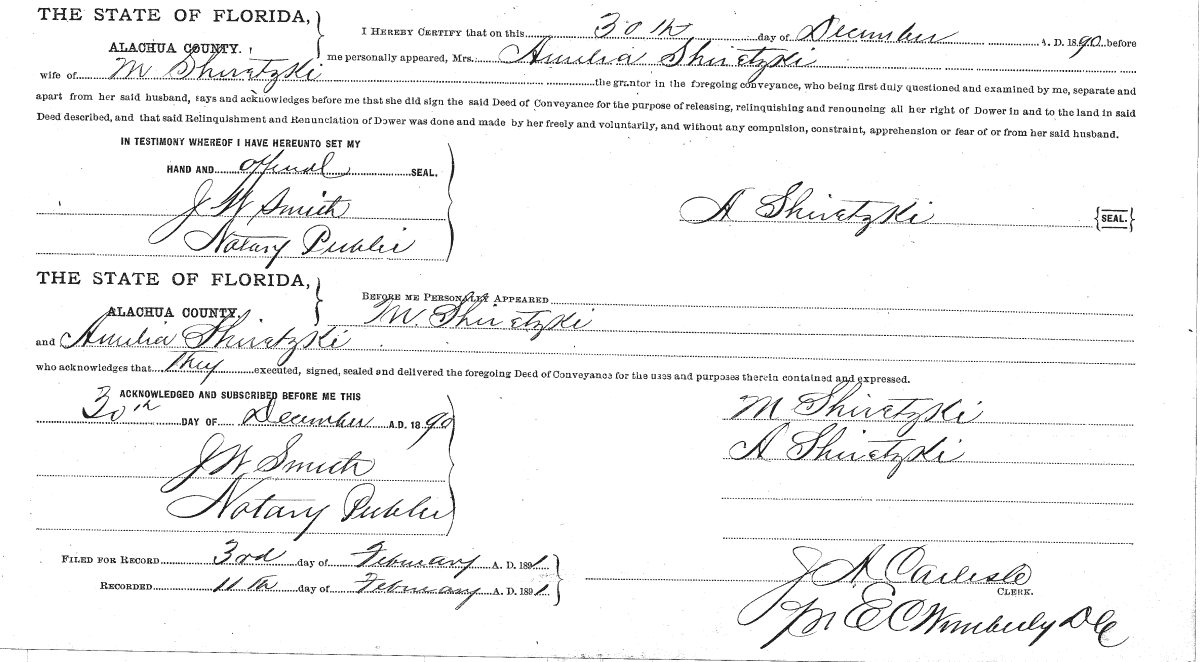 THE STATE OF FLORIDA,
ALACHUA COUNTY.
I HEREBY CERTIFY that on this 30th day of December A. D. 1890 before
me personally appeared, Mrs. Amelia Shiretzki
wife of M Shiretzki the grantor in the foregoing conveyance, who being first duly questioned and examined by me, separate and
apart from her said husband, says and acknowledges before me that she did sign the said Deed of Conveyance for the purpose of releasing, relinquishing and renouncing all her right of Dower in and to the land in said
Deed described, and that said Relinquishment and Renunciation of Dower was done and made by her freely and voluntarily, and without any compulsion, constraint, apprehension or fear of or from her said husband.
IN TESTIMONY WHEREOF I HAVE HEREUNTO SET MY
HAND AND official SEAL.
J W Smith
Notary Public
A Shiretzki {SEAL.}
THE STATE OF FLORIDA,
ALACHUA COUNTY.
BEFORE ME PERSONALLY APPEARED
M. Shiretzki
and Amelia Shiretzki
who acknowledges that they executed, signed, sealed and delivered the foregoing Deed of Conveyance for the uses and purposes therein contained and expressed.
ACKNOWLEDGED AND SUBSCRIBED BEFORE ME THIS
30th DAY OF December A.D. 1890
J W Smith
Notary Public
M Shiretzki
A Shiretzki
FILED FOR RECORD 3rd day of February A. D. 1891
RECORDED 11th day of February A. D. 1891
J A Carlisle
CLERK.
E C Wimberly D C